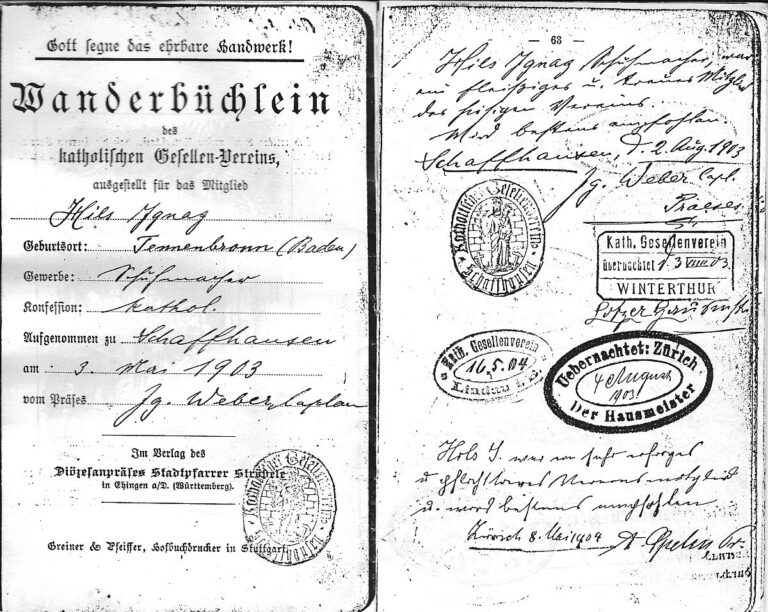 Gott segne das ehrbare Handwerk!
Wanderbüchlein
des
katholischen Gesellen-Vereins,
ausgestellt für das Mitglied
Hils Ignaz
Geburtsort: Tennenbronn (Baden)
Gewerbe: Schuhmacher
Konfession: kathol.
Aufgenommen zu Schaffhausen
am: 3. Mai 1903
vom Präses Jg. Weber, Caplan
Im Verlag des
Diözesanpräses Stadtpfarrer Ströbele
in Ehingen a/D. (Württemberg).
Greiner & Pfeiffer, Hofbuchdrucker in Stuttgart.
— 63 —
Hils Ignaz Schuhmacher, war
ein fleißiges u. treues Mitglied
des hiesigen Vereins.
Wird bestens empfohlen.
Schaffhausen, d. 2. Aug. 1903
Jg. Weber Capl.
Praeses
Katholischer Gesellenverein
Schaffhausen
Kath. Gesellenverein
übernachtet 3 VIII 03
WINTERTHUR
Kath. Gesellenverein
16.5.04
Lindau i. B.
Uebernachtet: Zürich
4 August
1903
Der Hausmeister
Hils I. war ein sehr
u. Vereinsmitglied
u. wird bestens empfohlen
Zürich 8. Mai 1904